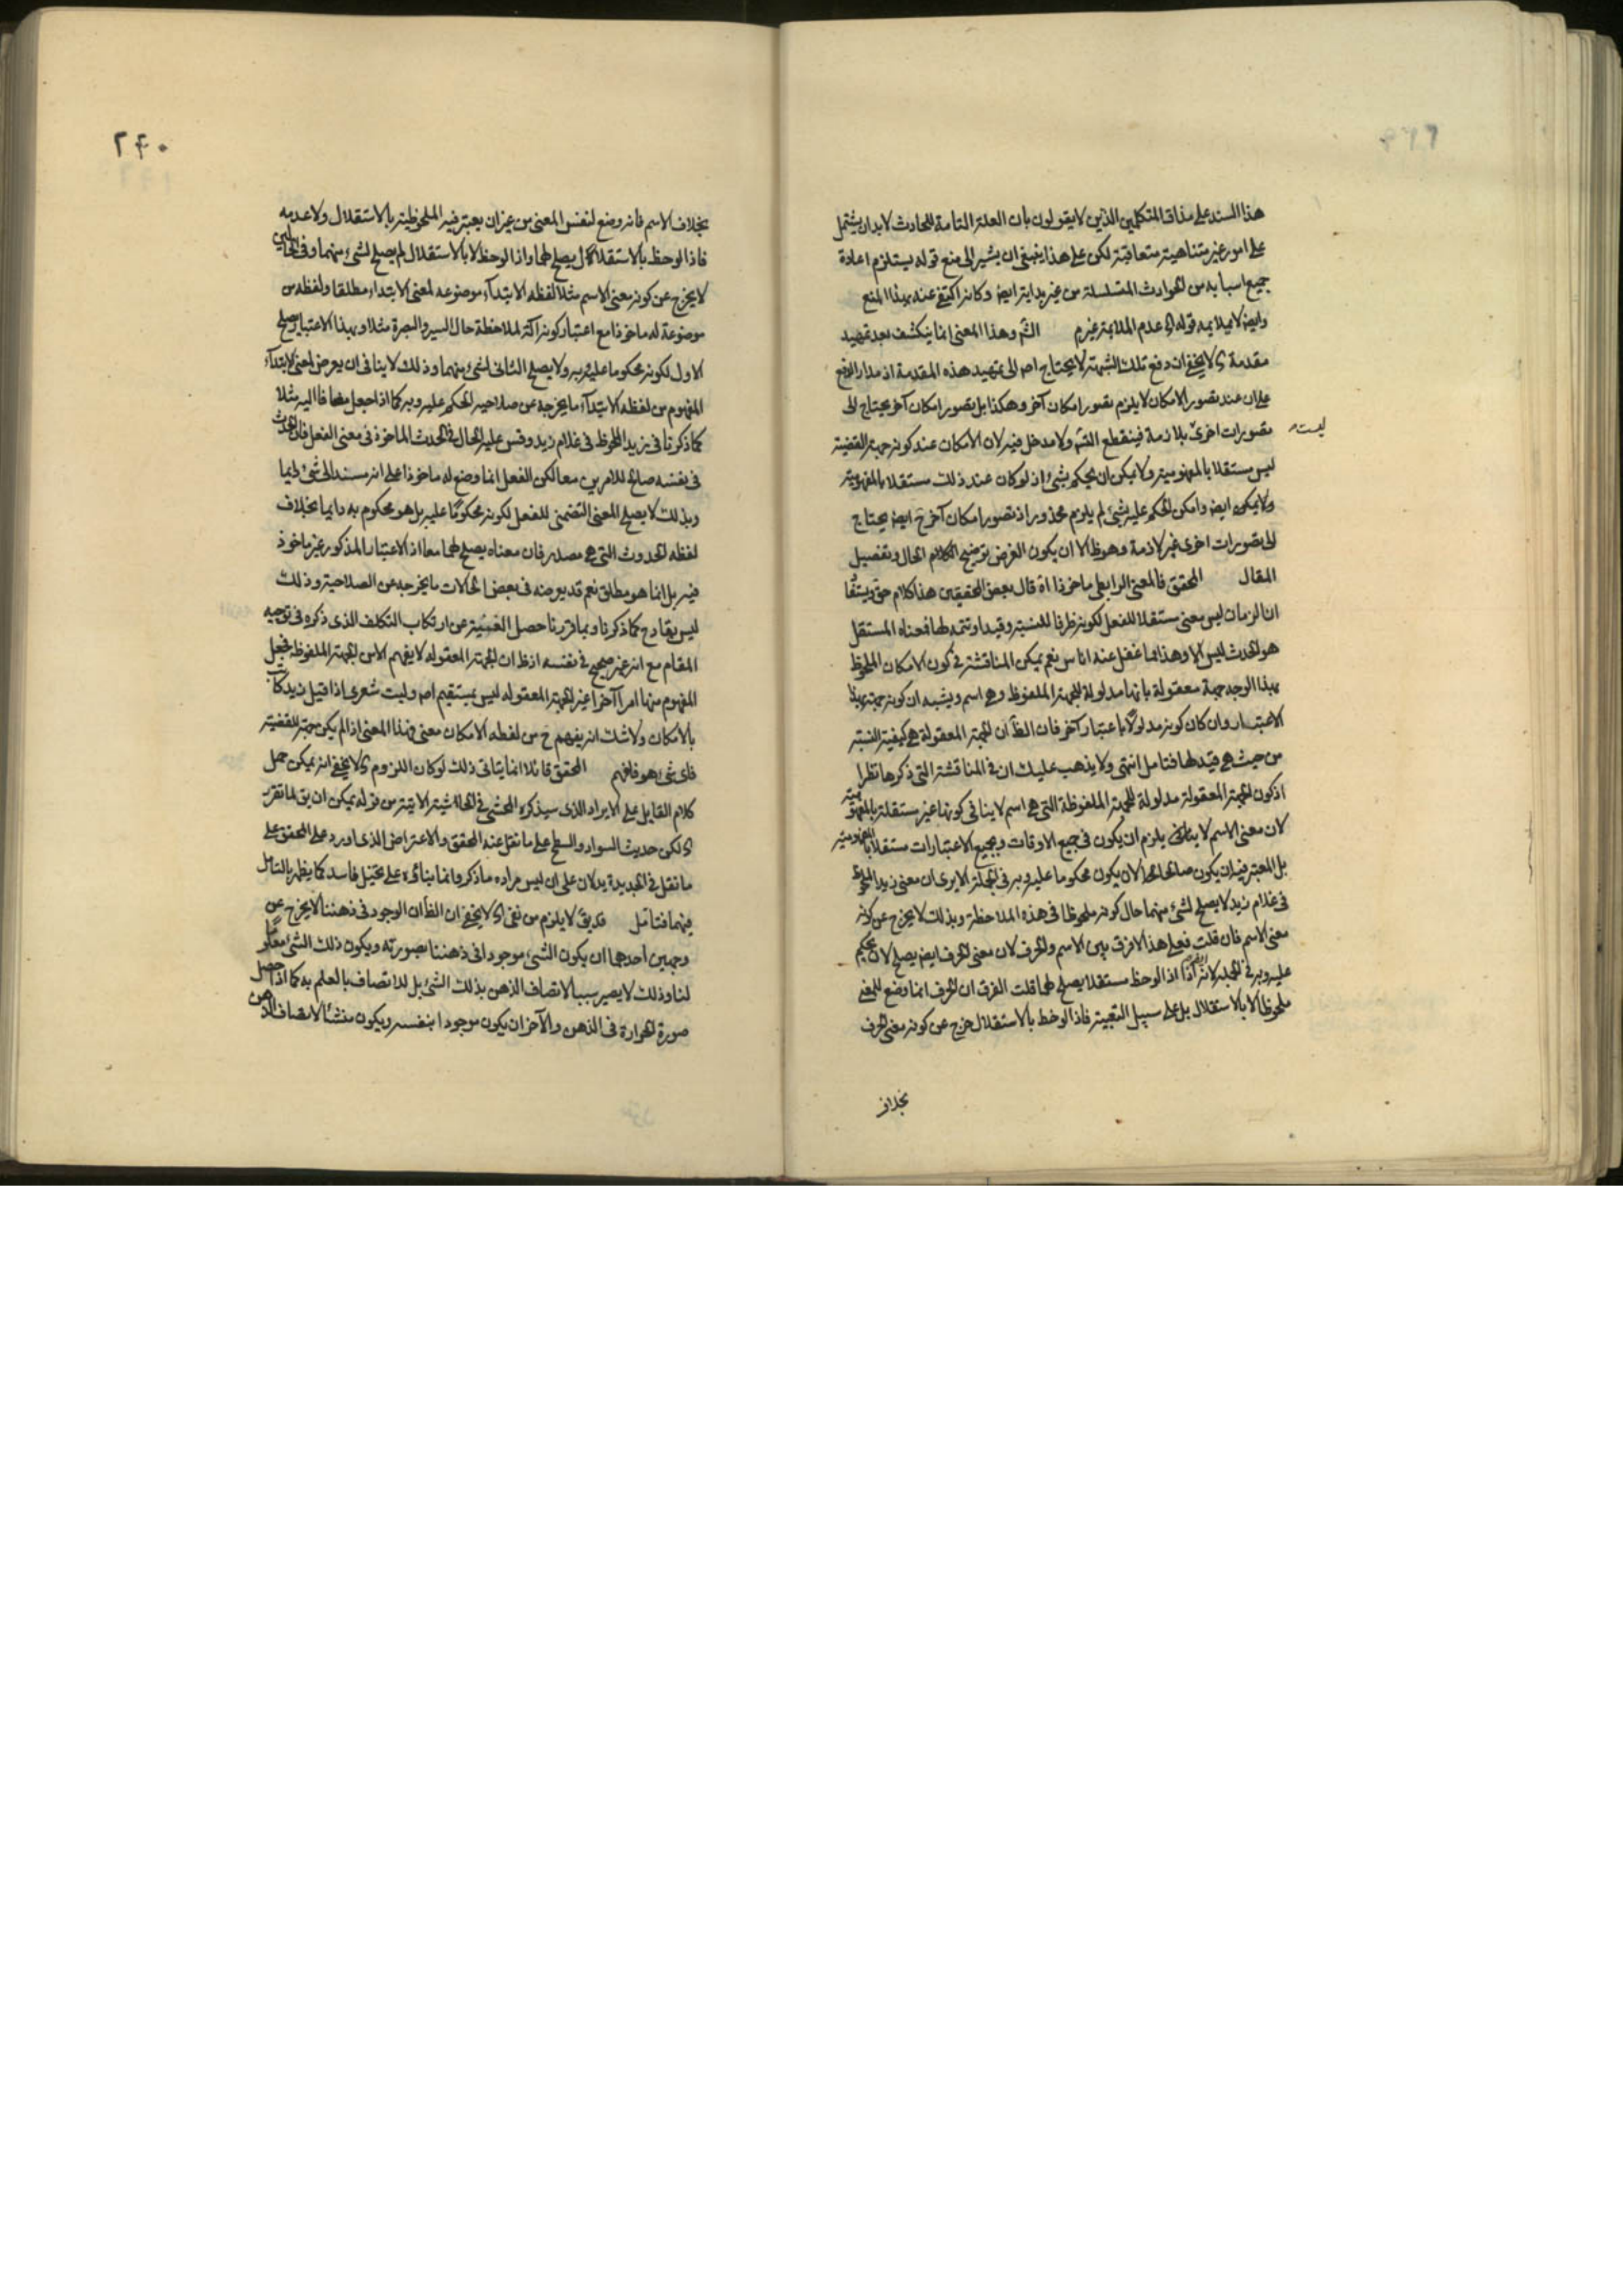 هذا السند على مذاق المتكلمين الذين لا يقولون بان العلة التامة للحادث لا بد ان يشتمل
على امور غير متناهية متعاقبة لكن على هذا ينبغى ان يشير الى منع قوله يستلزم اعادة
جميع اسبابه من الحوادث المتسلسلة من غير بداية ايضا وكانه اكتفى عنه بهذا المنع
وايضا لا يلايمه قوله اى عدم الملايمة غيرم الشم وهذا المعنى انما ينكشف بعد تمهيد
مقدمة اى لا يخفى ان دفع تلك الشبهة لا يحتاج اصلا الى تمهيد هذه المقدمة اذ مدار الدفع
على ان عند تصور الامكان لا يلزم تصور امكان آخر وهكذا بل تصور امكان آخر يحتاج الى
تصورات اخرى بلازمة فينقطع التسم ولا مدخل فيه لان الامكان عند كونه جهة القضية
ليست
ليس مستقلا بالمفهومية ولا يمكن ان يحكم بشئ اذ لو كان عند ذلك مستقلا بالمفهومية
ولا يمكن ايضا وامكن الحكم عليه بشئ لم يلزم محذور اذ تصور امكان آخر ح ايضا يحتاج
الى تصورات اخرى غير لازمة وهو ظ الا ان يكون الغرض توضيح الكلام الحال وتفصيل
المقال المحقق فالمعنى الرابطى ماخوذا اه قال بعض المحققين هذا كلام حق
ان الزمان ليس معنى مستقلا للفعل لكونه ظرفا للنسبة وقيدا وتتمه لها فمعناه المستقل
هو الحدث ليس الا وهذا مما غفل عنه اناس نعم يمكن المناقشة فى كون الامكان الملحوظ
بهذا الوجه جهة معقولة بانها مدلولة للجهة الملفوظة وهى اسم ويشبه ان كونه جهة بهذا
الاعتبار وان كان كونه مدلولا باعتبار آخر فان الظ ان الجهة المعقولة هى كيفية النسبة
من حيث هى قيد لها فتامل انتهى ولا يذهب عليك ان فى المناقشة التى ذكرها نظرا
اذ كون الجهة المعقولة مدلولة للجهة الملفوظة التى هى اسم لا ينافى كونها غير مستقلة بالمفهومية
لان معنى الاسم لا يلزم ان يكون فى جميع الاوقات وبجميع الاعتبارات مستقلا بالمفهومية
بل المعتبر فيه ان يكون صالحا لان يكون محكوما عليه وبه فى الجملة الا يرى ان معنى زيد الملحوظ
فى غلام زيد لا يصلح لشئ منهما حال كونه ملحوظا فى هذه الملاحظة وبذلك لا يخرج عن كونه
معنى الاسم فان قلت فعلى هذا لا فرق بين الاسم والحرف لان معنى الحرف ايضا يصلح لان يحكم
عليه وبه فى الجملة لانه اذا لوحظ مستقلا يصلح لهما قلت الفرق ان الحرف انما وضع للمعنى
ملحوظا لا بالاستقلال بل على سبيل التبعية فاذا لوحظ بالاستقلال خرج عن كونه معنى الحرف
بخلاف
٢٤٠
بخلاف الاسم فانه وضع لنفس المعنى من غير ان يعتبر فيه الملحوظية بالاستقلال ولا عدمه
فاذا لوحظ بالاستقلال يصلح لهما واذا لوحظ لا بالاستقلال لم يصلح لشئ منهما وفى الحالين
لا يخرج عن كونه معنى الاسم مثلا لفظه الابتدآء موضوعه لمعنى الابتداء مطلقا ولفظه من
موضوعة له ماخوذا مع اعتبار كونه آلة لملاحظة حال السير والبصرة مثلا وبهذا الاعتبار يصلح
الاول لكونه محكوما عليه وبه ولا يصلح الثانى لشئ منهما وذلك لا ينافى ان يعرض لمعنى الابتدآء
المفهوم من لفظه الابتدآء ما يخرجه عن صلاحية الحكم عليه وبه كما اذا جعل مضافا اليه مثلا
كما ذكرنا فى زيد الملحوظ فى غلام زيد وقس عليه الحال فى الحدث الماخوذ فى معنى الفعل فان الحدث
فى نفسه صالح للامرين معا لكن الفعل انما وضع له ماخوذا على انه مسند الى شئ دايما
وبذلك لا يصلح المعنى التضمنى للفعل لكونه محكوما عليه بل هو محكوم به دايما بخلاف
لفظه الحدوث التى هى مصدر فان معناه يصلح لهما معا اذ الاعتبار المذكور غير ماخوذ
فيه بل انما هو مطلق نعم قد يعرضه فى بعض الحالات ما يخرجه عن الصلاحية وذلك
ليس بقادح كما ذكرنا وبما قررنا حصل الغنية عن ارتكاب التكلف الذى ذكره فى توجيه
المقام مع انه غير صحيح فى نفسه اذ ظ ان الجهة المعقوله لا يفهم الا من الجهة الملفوظه فجعل
المفهوم منها امرا آخرا غير الجهة المعقوله ليس بمستقيم اصلا وليت شعرى اذا قيل زيد كاتب
بالامكان ولا شك انه يفهم ح من لفظه الامكان معنى فهذا المعنى اذا لم يكن جهة للقضية
فاى شئ هو فافهم المحقق قائلا انما يتاتى ذلك لو كان اللزوم اى لا يخفى انه يمكن حمل
كلام القايل على الايراد الذى سيذكره المحشى فى الحاشية الاتية من قوله يمكن ان يق لما تقرر
اى لكن حديث السواد والسطح على ما نقل عنه المحقق والاعتراض الذى اورد على المحقق على
ما نقل فى الجديدة يدلان على ان ليس مراده ما ذكر وانما بنائه على تخيل فاسد كما يظهر بالتامل
فيهما فتامل قد يق لا يلزم من نفى اى لا يخفى ان الظ ان الوجود فى ذهننا لا يخرج عن
وجهين احدهما ان يكون الشئ موجودا فى ذهننا بصورته ويكون ذلك الشئ معلوما
لنا وذلك لا يصير سببا لاتصاف الذهن بذلك الشئ بل للاتصاف بالعلم به كما اذا حصل
صورة الحرارة فى الذهن والآخر ان يكون موجودا بنفسه ويكون منشأ لاتصاف الذهن